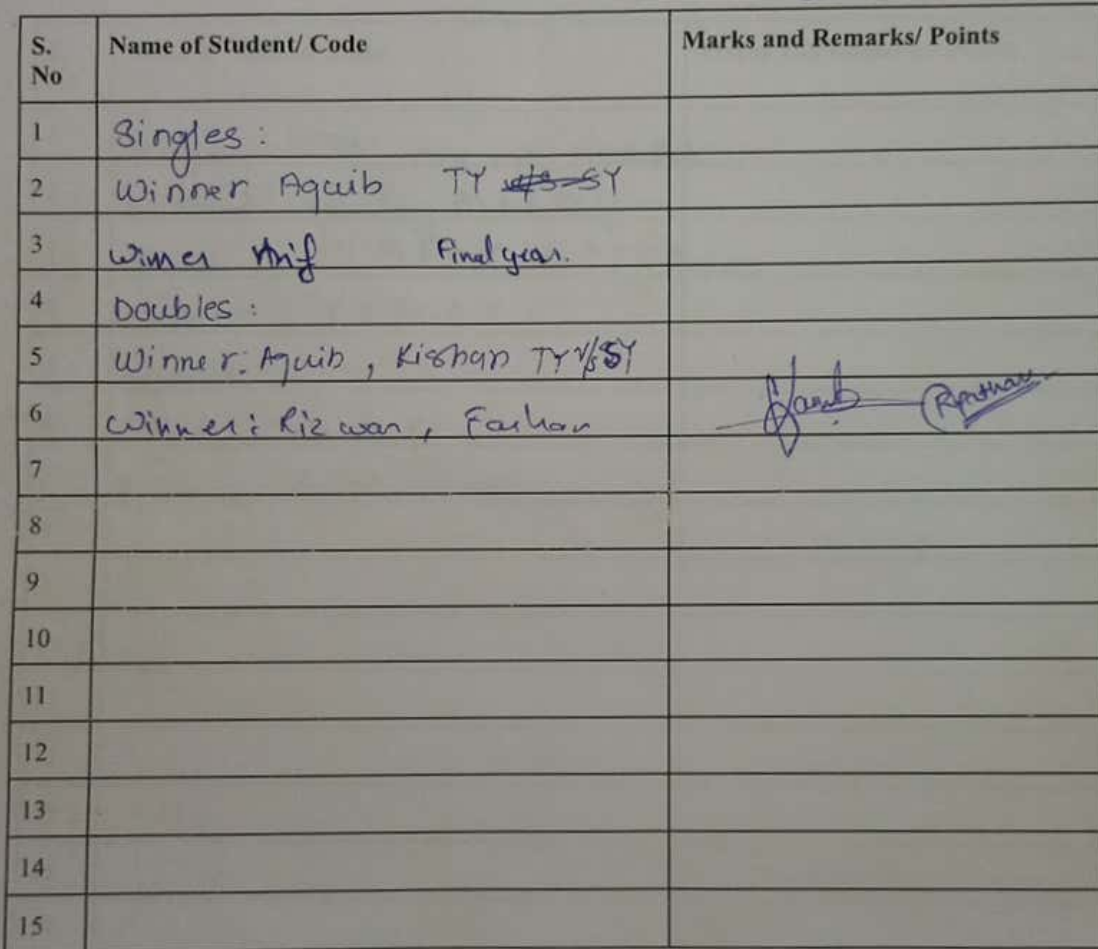 S. No Name of Student/ Code Marks and Remarks/ Points
1 Singles :
2 Winner Aquib TY v/s SY
3 Winner Arif Final year.
4 Doubles :
5 Winner: Aquib, Kishan TY v/s SY
6 Winner: Rizwan, Farhan
7
8
9
10
11
12
13
14
15